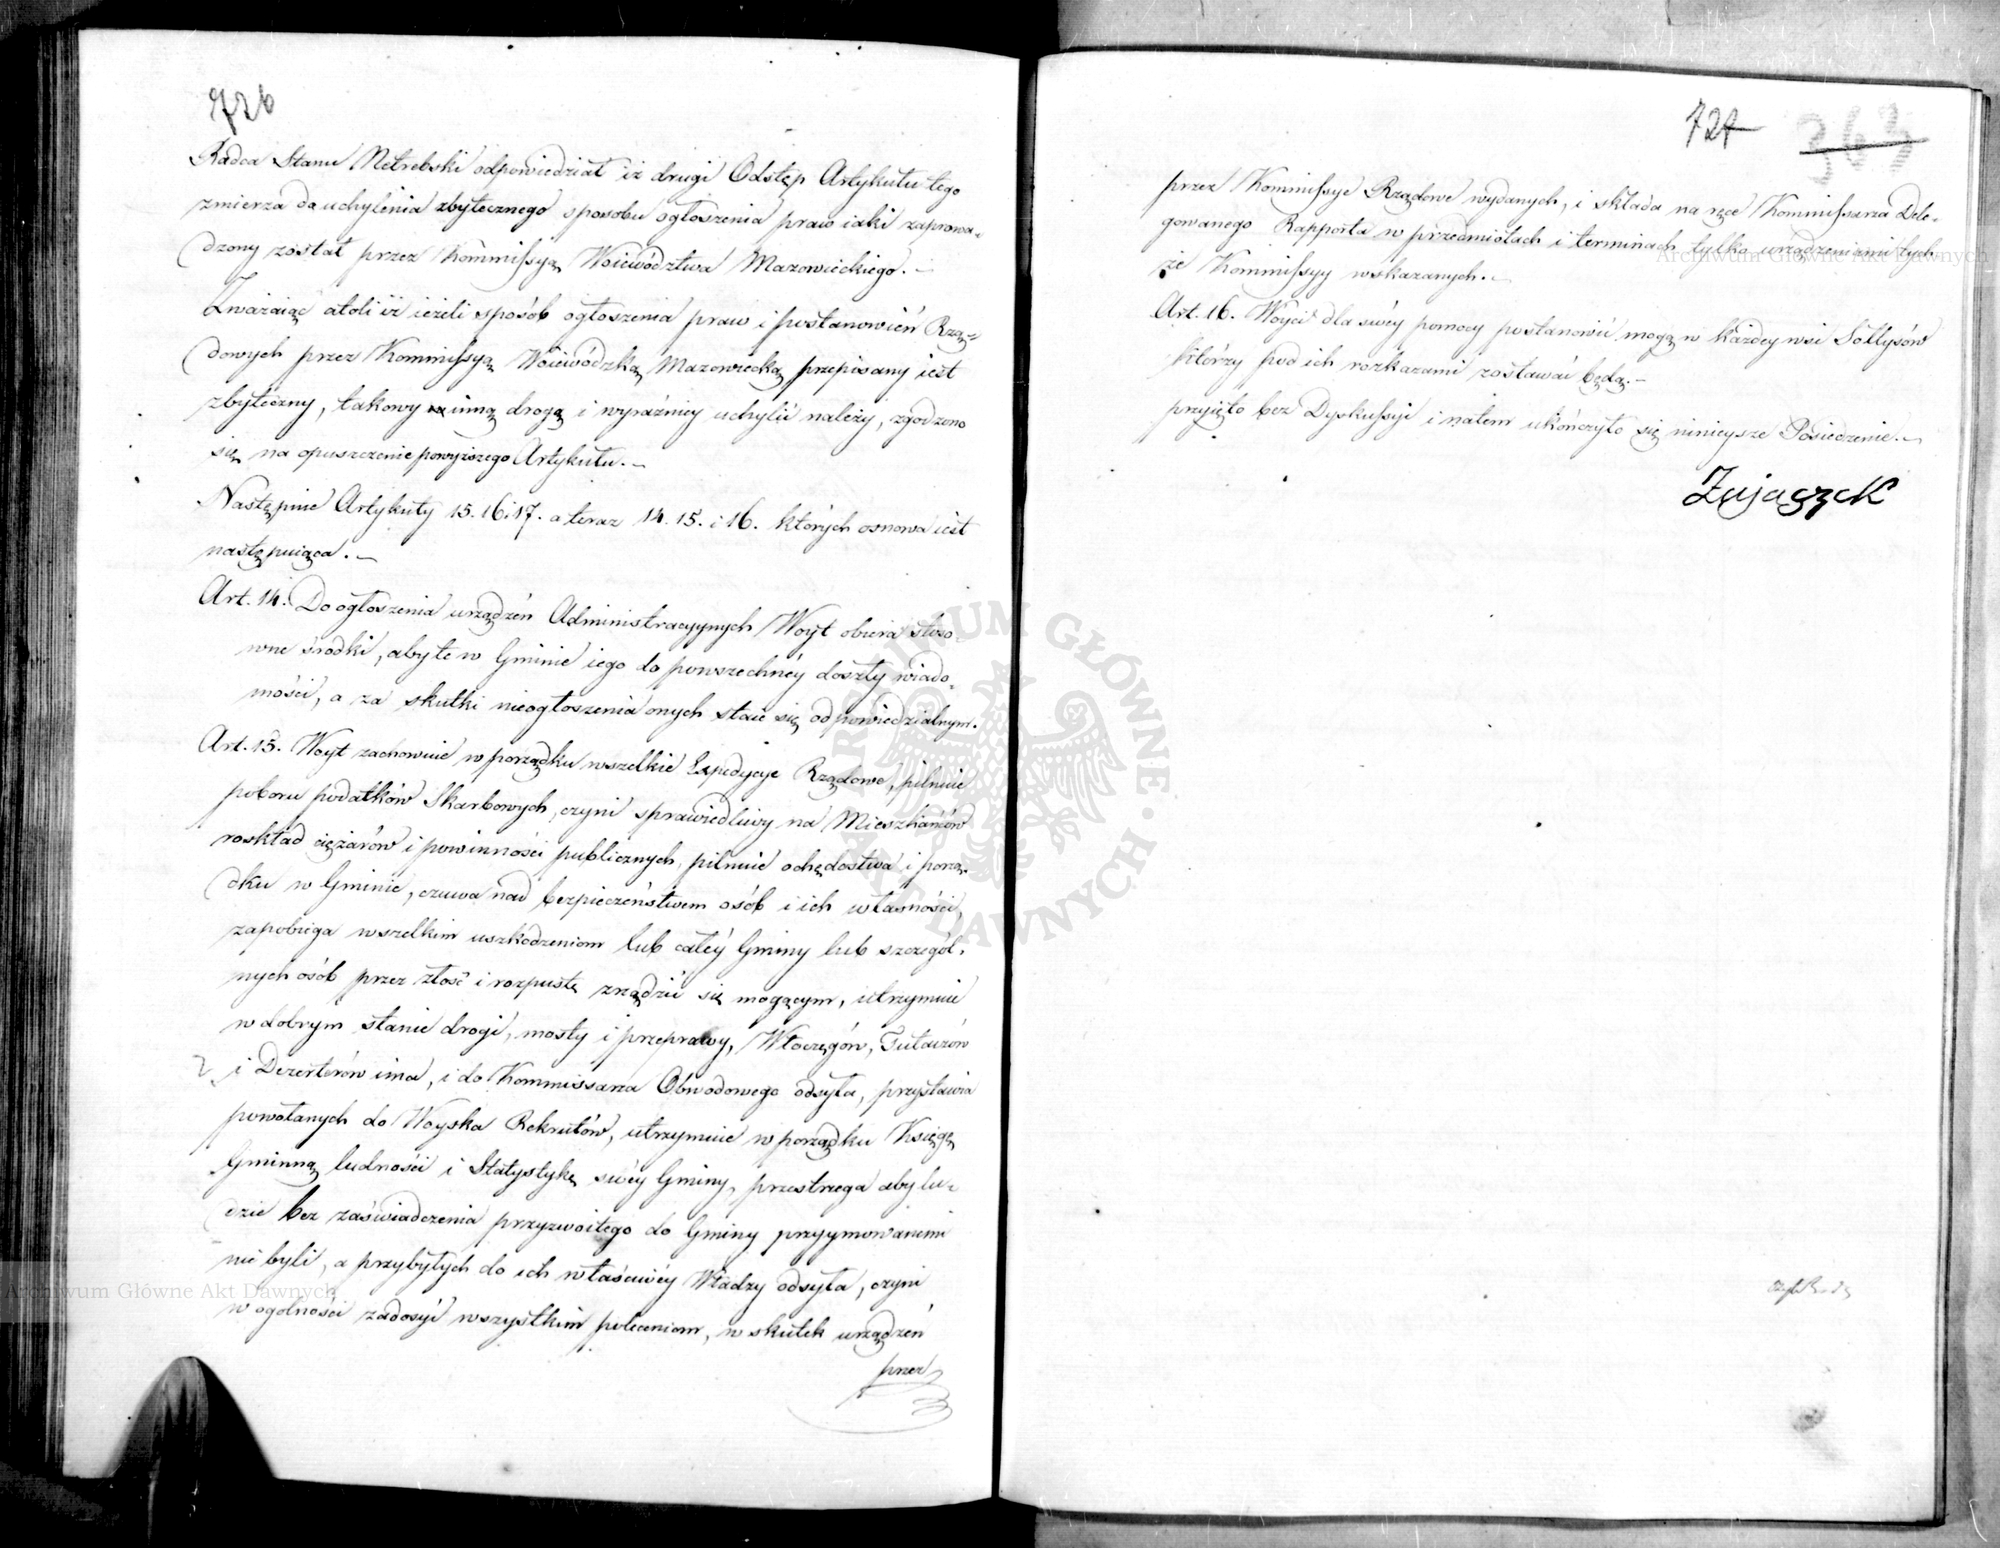 726
Radca Stanu Metrebski odpowiedział iż drugi Odstęp Artykułu tego
zmierza do uchylenia zbytecznego sposobu ogłoszenia praw iaki zaprowa-
dzony został przez Kommissyą Woiewództwa Mazowieckiego.—
Zważaiąc atoli iż ieżeli sposób ogłoszenia praw i postanowień Rzą-
dowych przez Kommissyą Woiewódzką Mazowiecką przepisany iest
zbyteczny, takowy inną drogą i wyraźniey uchylić należy, zgodzono
się na opuszczenie powyższego Artykułu.—
Następnie Artykuły 15. 16. i 17. a teraz 14. 15. i 16. których osnowa iest
następuiąca.—
Art. 14. Do ogłoszenia urządzeń Administracyynych Woyt obiera stoso-
wne środki, aby te w Gminie iego do powszechnéy doszły wiado-
mości, a za skutki nieogłoszenia onych staie się odpowiedzialnym.
Art. 15. Woyt zachowuie w porządku wszelkie Expedycye Rządowe, pilnuie
poboru podatków Skarbowych, czyni sprawiedliwy na Mieszkańców
roskład ciężarów i powinności publicznych, pilnuie ochędostwa i porzą-
dku w Gminie, czuwa nad bezpieczeństwem osób i ich własności,
zapobiega wszelkim uszkodzeniom lub całéy Gminy lub szczegól-
nych osób przez złość i rozpustę zrządzić się mogącym, utrzymuie
w dobrym stanie drogi, mosty i przeprawy, Włóczęgów, Tułaczów
i Dezerterów ima, i do Kommissarza Obwodowego odsyła, przystawia
powołanych do Woyska Rekrutów, utrzymuie w porządku Księgę
Gminną ludności i Statystykę swéy Gminy, przestrzega aby lu-
dzie bez zaświadczenia przyzwoitego do Gminy przyymowanemi
nie byli, a przybyłych do ich właściwéy Władzy odsyła, czyni
w ogólności zadosyć wszystkim poleceniom, w skutek urządzeń
przez
727 363
przez Kommissye Rządowe wydanych, i składa na ręce Kommissarza Dele-
gowanego Rapporta w przedmiotach i terminach tylko urządzeniami tych-
że Kommissyy wskazanych.—
Art. 16. Woyci dla swéy pomocy postanowić mogą w każdey wsi Sołtysów
którzy pod ich rozkazami zostawać będą.—
przyięto bez Dyskussyi i na tem ukończyło się ninieysze Posiedzenie.—
Zajączek
ARCHIWUM GŁÓWNE AKT DAWNYCH
Archiwum Główne Akt Dawnych
Archiwum Główne Akt Dawnych